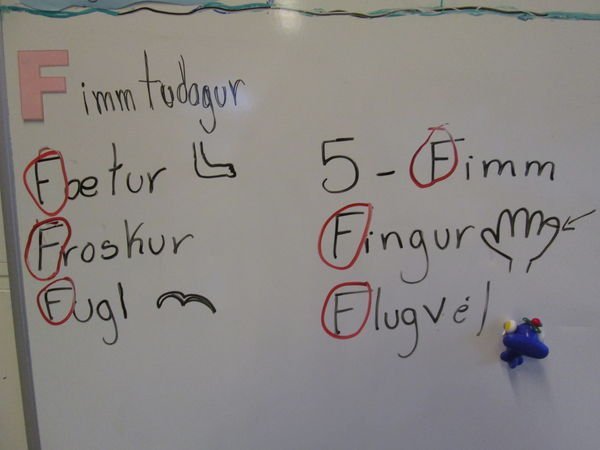 Fimmtudagur
Fætur
Froskur
Fugl
5 - Fimm
Fingur
Flugvél